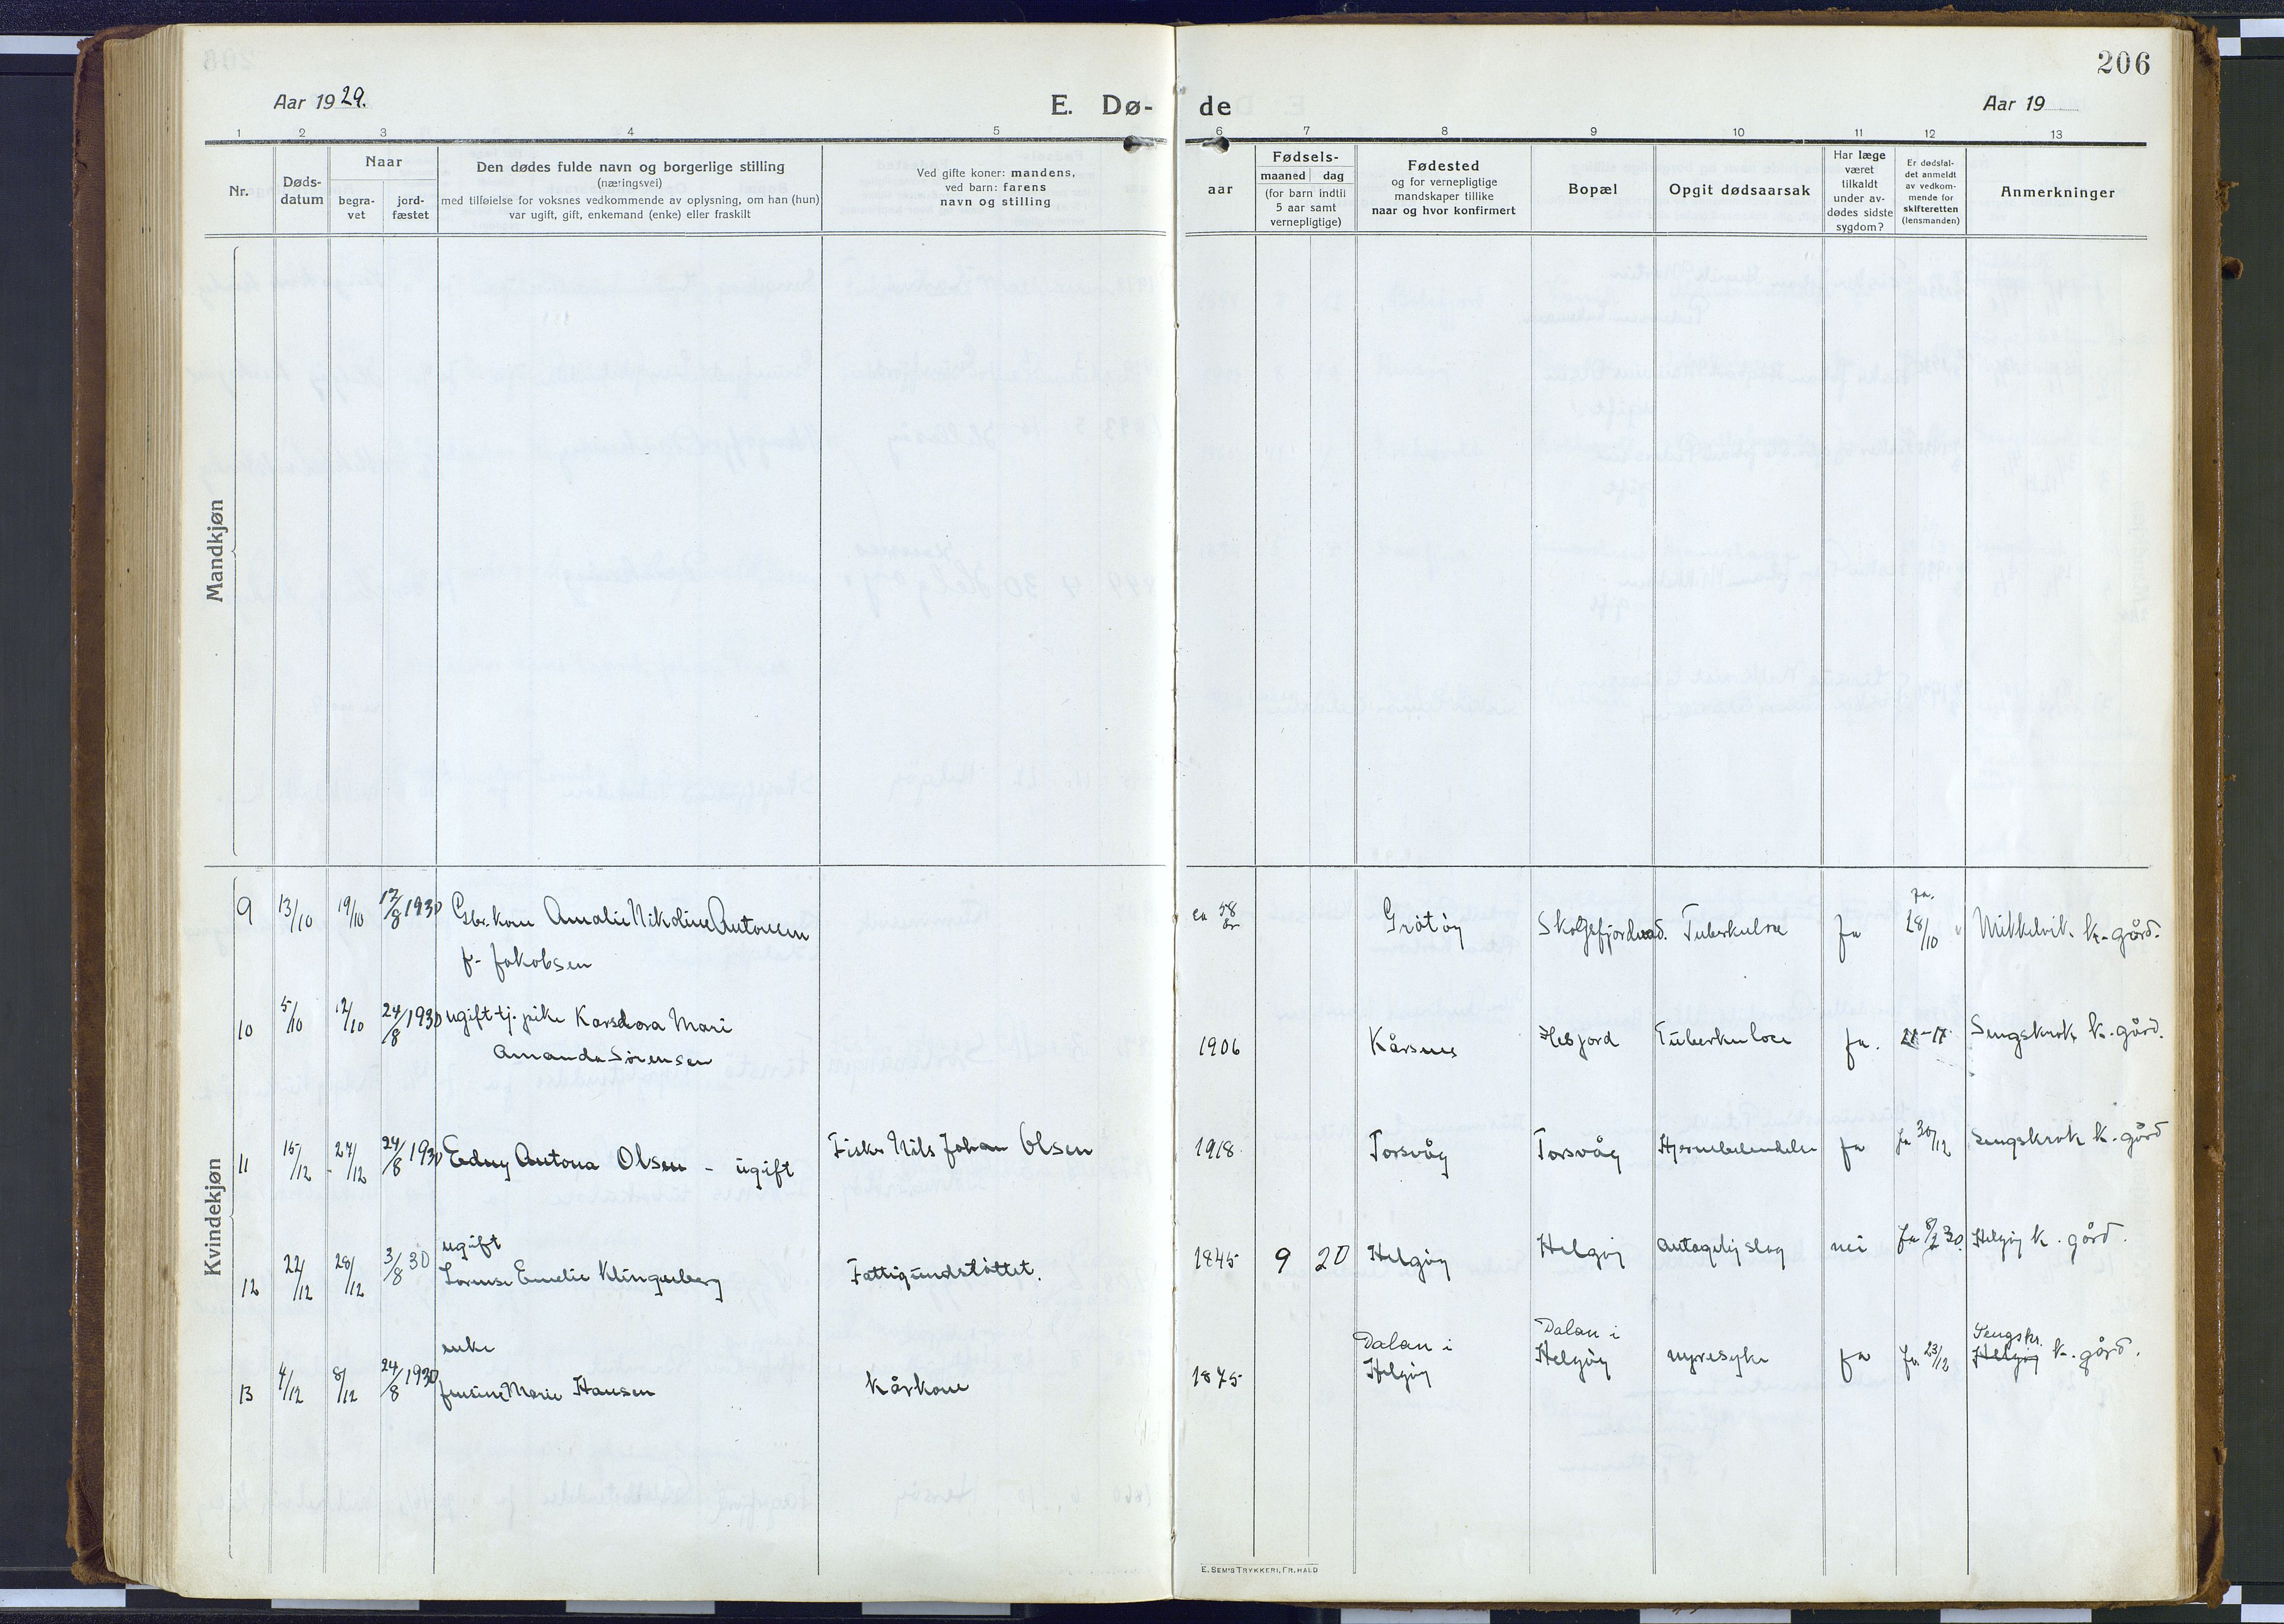 206
Aar 1929.
E. Dø-
de
Aar 19
1 2 3 4 5 6 7 8 9 10 11 12 13
Nr.
Døds-
datum
Naar
begra-
vet
jord-
fæstet
Den dødes fulde navn og borgerlige stilling
(næringsvei)
med tilføielse for voksnes vedkommende av oplysning, om han (hun)
var ugift, gift, enkemand (enke) eller fraskilt
Ved gifte koner: mandens,
ved barn: farens
navn og stilling
aar
Fødsels-
maaned dag
(for barn indtil
5 aar samt
vernepligtige)
Fødested
og for vernepligtige
mandskaper tillike
naar og hvor konfirmert
Bopæl
Opgit dødsaarsak
Har læge
været
tilkaldt
under av-
dødes sidste
sygdom?
Er dødsfal-
det anmeldt
av vedkom-
mende for
skifteretten
(lensmanden)
Anmerkninger
Mandkjøn
Kvindekjøn
9 13/10 19/10 17/8 1930 Gbr. kone Amalie Nikoline Antonsen
f. Jakobsen
ca 58 år Grøtøy Skogsfjordvad. Tuberkulose ja ja. 28/10 Mikkelvik k. gård.
10 5/10 12/10 24/8 1930 ugift tj. pike Karsdora Mari
Amanda Sørensen
1906 Kårsnes Hesjord Tuberkulose ja. Sengskrok k. gård.
11 15/12 27/12 24/8 1930 Edny Antona Olsen - ugift Fisker Nils Johan Olsen 1918 Torsvåg Torsvåg Hjernebetendelse ja ja 30/12 Sengskrok k. gård
ugift
12 22/12 28/12 3/8 30 Lorense Emelie Klingenberg Fattigundstøttet. 1845 9 20 Helgøy Helgøy antagelig slag nei ja 8/2 30. Helgøy k. gård.
enke
13 4/12 8/12 24/8 1930 Jensine Marie Hansen Kårkone 1875 Dalan i
Helgøy
Dalan i
Helgøy
nyresyke ja ja 23/12 Sengskr.
Helgøy k. gård.
E. SEM'S TRYKKERI, FR. HALD